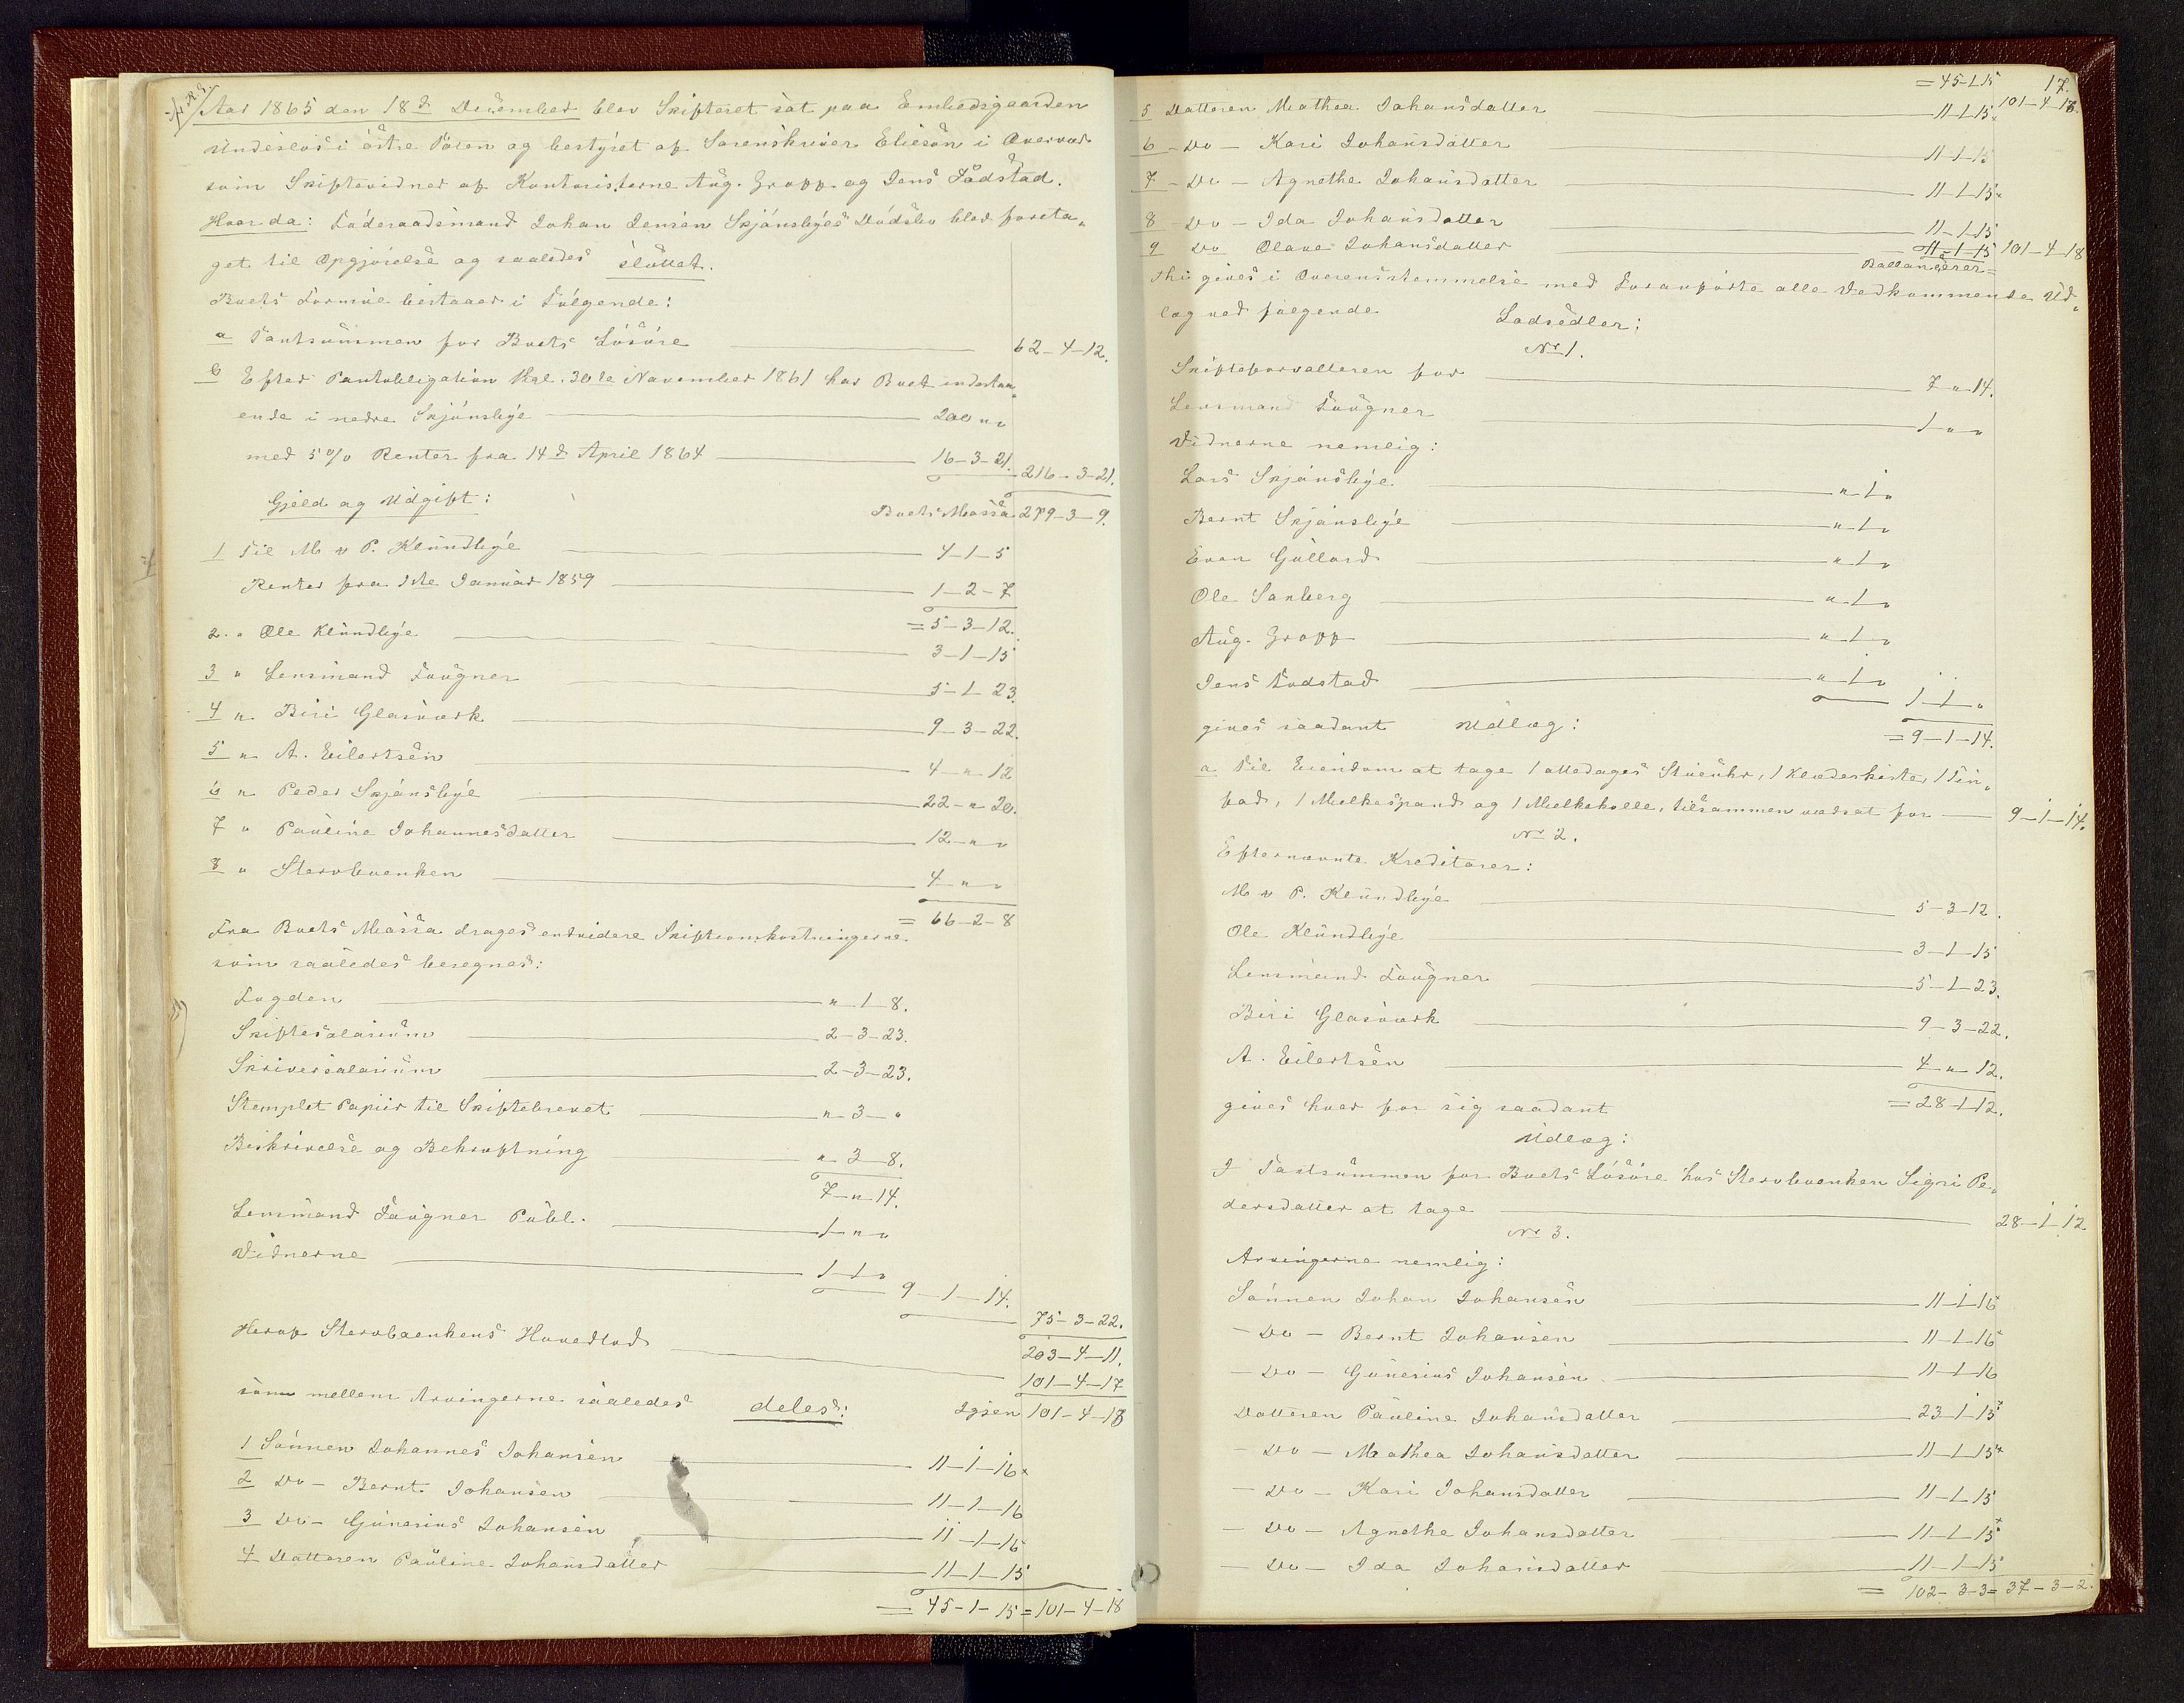 Aar 1865 den 18de December blev Skifteret sat paa Embedsgaarden
Undeslös i östre Toten og bestyret af Sorenskriver Elieson i Overvær
som Skiftevidner af Kontoristerne Aug. Gropp og Jens Fodstad.
Hvor da: Föderaadsmand Johan Jensen Skjönsbyes Dödsbo blev foreta„
get til Opgjörelse og saaledes sluttet.
Boets Formue bestaaer i Fölgende:
a Taxtsummen for Boets Lösöre 62-4-12.
b Efter Pantobligation thgl. 30te November 1861 har Boet indestaa„
ende i nedre Skjönsbye 200 " "
med 5% Renter fra 14de April 1864 16-3-21. 216-3-21.
Gjeld og Udgift: Boets Massa 279-3-9.
1 Til M & P. Klundbye 4-1-5
Renter fra 1ste Januar 1859 1-2-7
= 5-3-12.
2 " Ole Klundbye 3-1-15
3 " Lensmand Fougner 5-1-23.
4 " Biri Glasværk 9-3-22.
5 " A. Eilertsen 4-"-12
6 " Peder Skjönsbye 22-"-20.
7 " Pauline Johannesdatter 12-"-"
8 " Stervboenken 4-"-"
= 66-2-8
Fra Boets Massa drages endvidere Skifteomkostningerne
som saaledes beregnes:
Fogden "-1-8.
Skiftesalarium 2-3-23.
Skriversalarium 2-3-23.
Stemplet Papiir til Skiftebrevet "-3-"
Beskrivelse og Bekræftning "-3-8.
7-"-14.
Lensmand Fougner 1-"-"
Vidnerne 1-1-" 9-1-14.
75-3-22.
203-4-11.
Heraf Stervboenkens Hovedlod 101-4-17
Igjen 101-4-18
som mellem Arvingerne saaledes deles:
1 Sönnen Johannes Johansen 11-1-16
2 Do - Bernt Johansen 11-1-16
3 Do - Gunerius Johansen 11-1-16
4 Datteren Pauline Johansdatter 11-1-15
= 45-1-15 = 101-4-18
= 45-1-15 17.
5 Datteren Mathea Johansdatter 11-1-15 101-4-18.
6 - Do - Kari Johansdatter 11-1-15
7 - Do - Agnethe Johansdatter 11-1-15
8 - Do - Ida Johansdatter 11-1-15
9 Do Olava Johansdatter 11-1-15 101-4-18
Ballancerer =
thi gives i Overensstemmelse med Foranförte alle Vedkommende Ud„
læg ved fölgende Lodsedler:
No 1.
Skifteforvalteren for 7-"-14.
Lensmand Fougner 1 " "
Vidnerne nemlig:
Lars Skjönsbye "-1-"
Bernt Skjönsbye "-1-"
Even Gullord "-1-"
Ole Sanberg "-1-"
Aug. Gropp "-1-"
Jens Fodstad "-1-"
1-1-"
gives saadant Udlæg: = 9-1-14.
a Til Eiendom at tage 1 ottedages Stueuhr, 1 Klædeskiste, 1 Tin„
fad, 1 Melkespand og 1 Melkekolle, tilsammen værdsat for 9-1-14.
No 2.
Efternævnte Kreditorer:
M & P. Klundbye 5-3-12.
Ole Klundbye 3-1-15
Lensmand Fougner 5-1-23.
Biri Glasværk 9-3-22.
A. Eilertsen 4-"-12.
gives hver for sig saadant = 28-1-12.
Udlæg:
I Taxtsummen for Boets Lösöre hos Stervboenken Sigri Pe„
dersdatter at tage 28-1-12
No 3.
Arvingerne nemlig:
Sönnen Johan Johansen 11-1-16
- Do - Bernt Johansen 11-1-16
- Do - Gunerius Johansen 11-1-16
Datteren Pauline Johansdatter 23-1-15
- Do - Mathea Johansdatter 11-1-15
- Do - Kari Johansdatter 11-1-15
- Do - Agnethe Johansdatter 11-1-15
- Do - Ida Johansdatter 11-1-15
= 102-3-3 = 37-3-2.